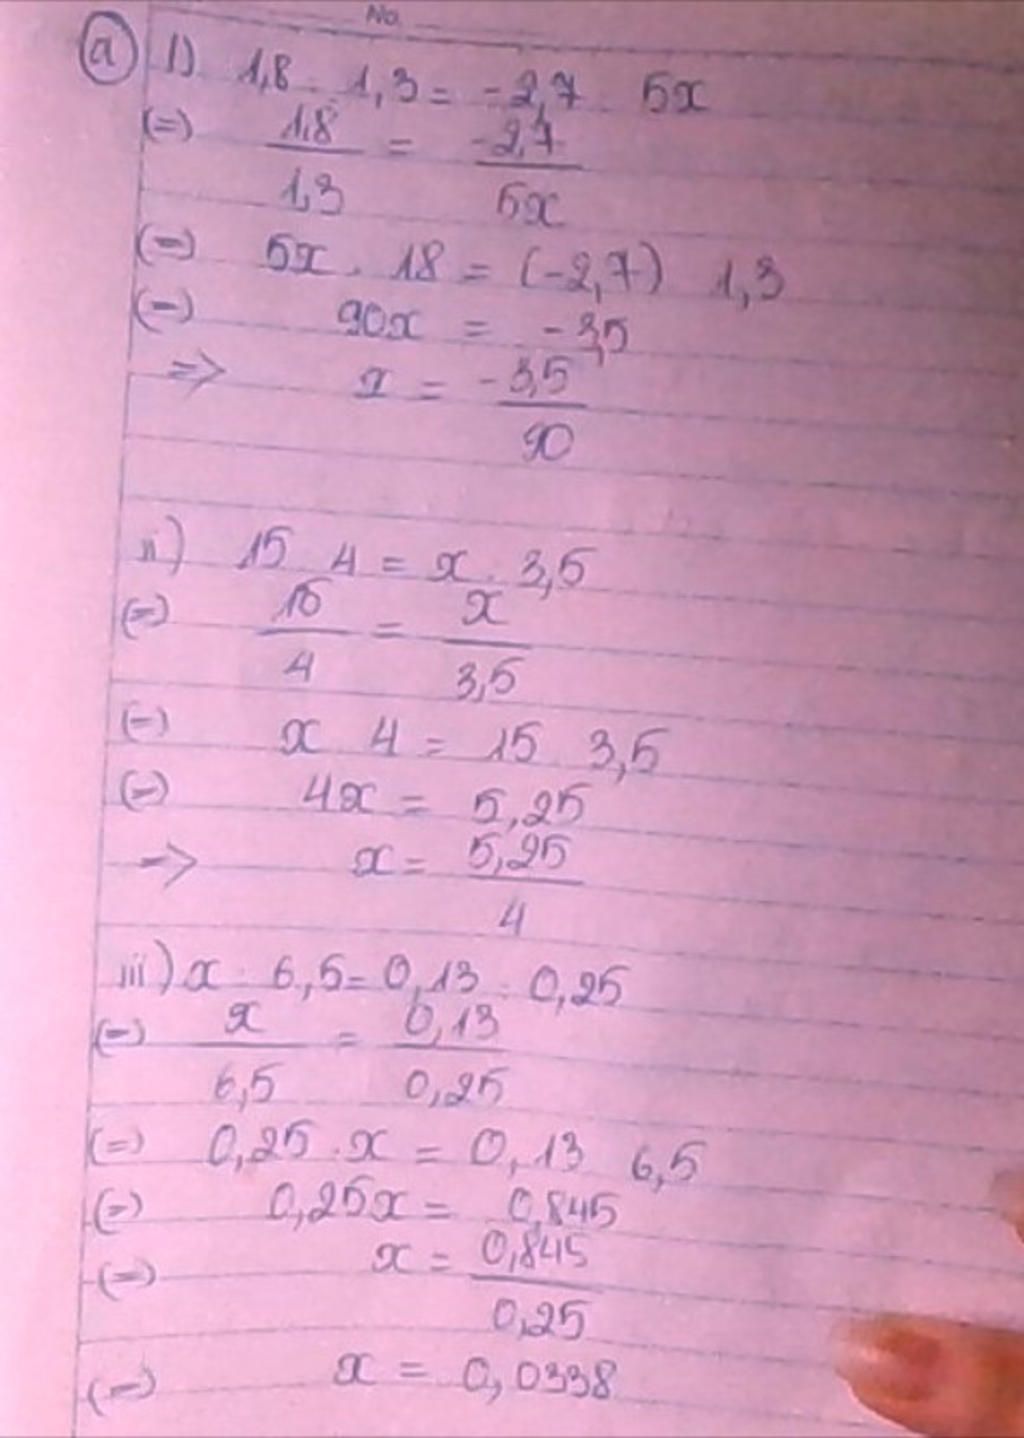 No.
a) 1) 1,8 . 1,3 = -2,7 5x
(=) 1,8/1,3 = -2,7/5x
(=) 5x . 18 = (-2,7) 1,3
(=) 90x = -3,5
=> x = -3,5/90
ii) 15 4 = x . 3,5
(=) 15/4 = x/3,5
(=) x 4 = 15 3,5
(=) 4x = 5,25
=> x = 5,25/4
iii) x . 6,5 = 0,13 : 0,25
(=) x/6,5 = 0,13/0,25
(=) 0,25 . x = 0,13 6,5
(=) 0,25x = 0,845
(=) x = 0,845/0,25
(=) x = 0,0338